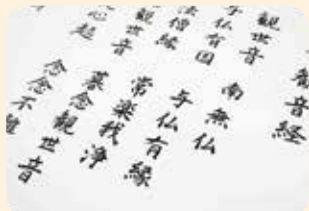 音経
観世音 南無仏
与仏有因 与仏有縁
法僧縁 常楽我浄
観世音 暮念観世音
心起 念念不